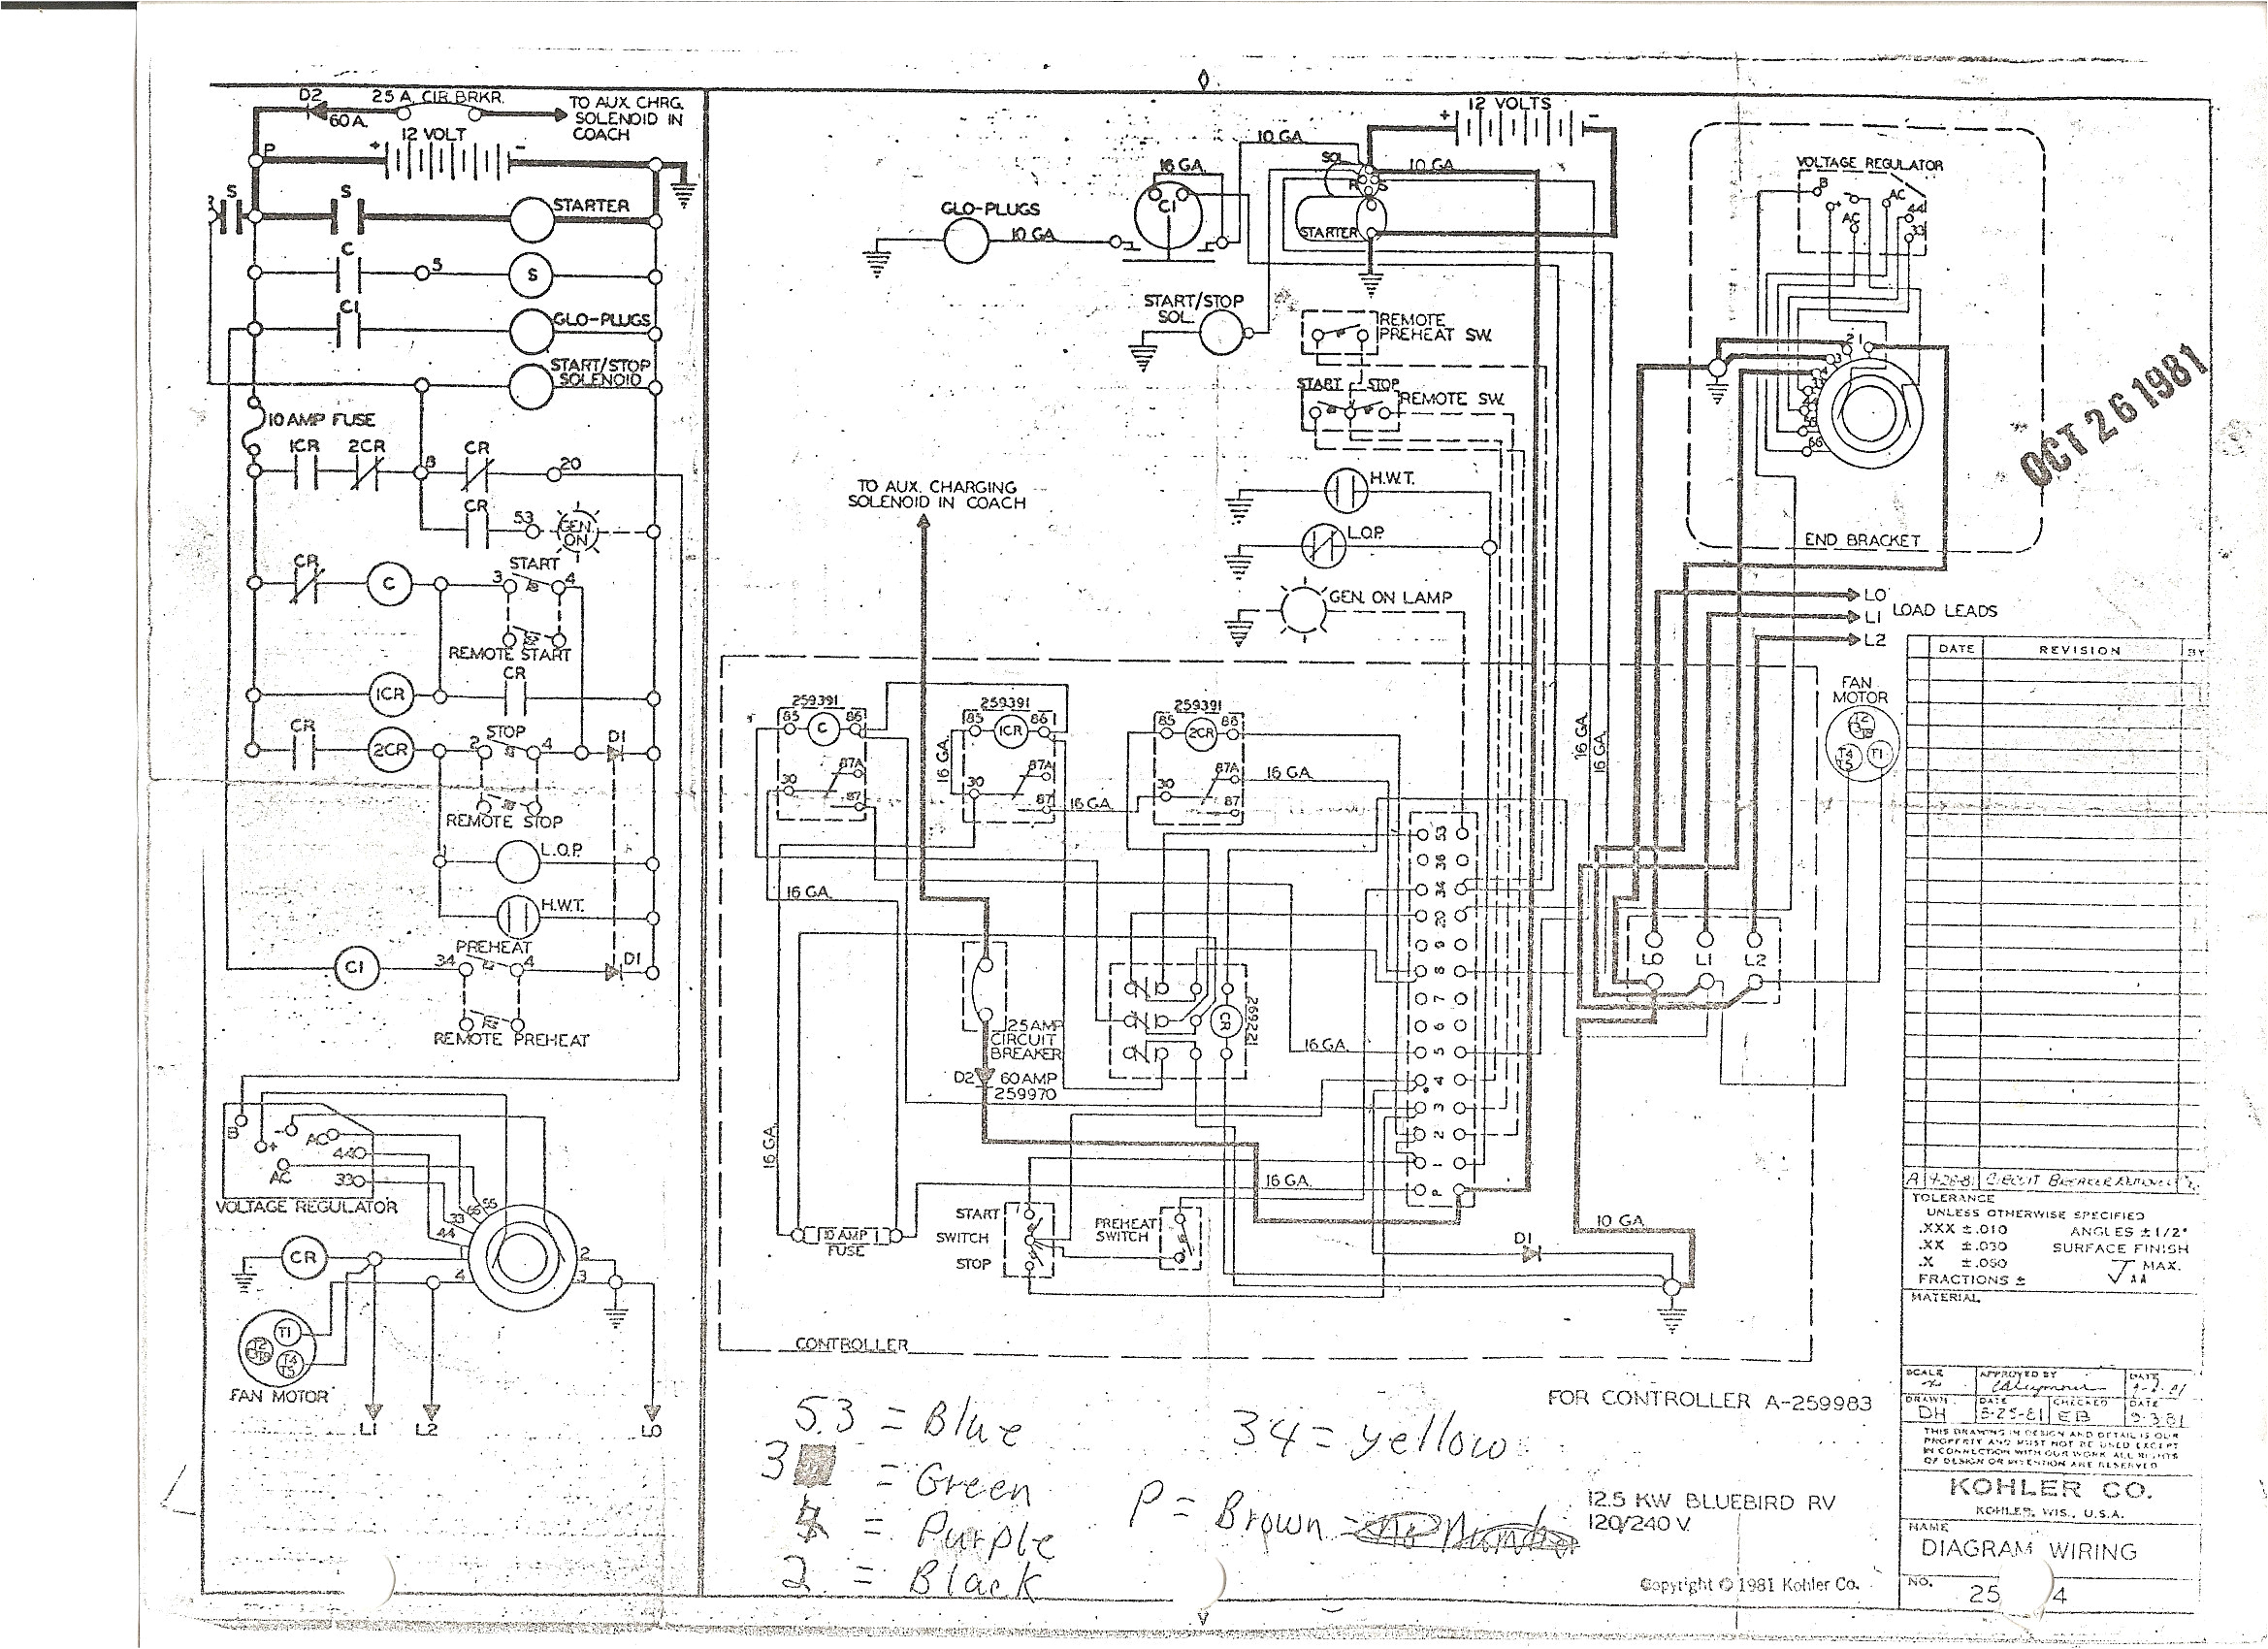 D2
25 A. CIR. BRKR.
60 A.
TO AUX. CHRG.
SOLENOID IN
COACH
P
+
12 VOLT
-
S
S
STARTER
C
S
S
C1
GLO-PLUGS
START/STOP
SOLENOID
10 AMP FUSE
1CR
2CR
8
CR
20
CR
53
GEN.
ON
CR
C
START
3
4
REMOTE START
1CR
CR
CR
2CR
STOP
2
4
D1
REMOTE STOP
1
L.O.P.
H.W.T.
PREHEAT
C1
34
4
D1
REMOTE PREHEAT
B
+
-
AC
44
AC
33
VOLTAGE REGULATOR
44
33
66
55
CR
1
4
2
3
T1
T4
T5
FAN MOTOR
L1
L2
L0
12 VOLTS
+
-
10 GA.
SOL.
10 GA.
16 GA.
C1
R
S
GLO-PLUGS
10 GA.
STARTER
START/STOP
SOL.
REMOTE
PREHEAT SW.
START
STOP
REMOTE SW.
H.W.T.
L.O.P.
GEN. ON LAMP
TO AUX. CHARGING
SOLENOID IN COACH
VOLTAGE REGULATOR
B
-
AC
+
AC
44
33
2
1
3
66
END BRACKET
OCT 26 1981
L0
L1
LOAD LEADS
L2
FAN
MOTOR
T1
T4
T5
259391
85
C
86
30
87A
87
259391
85
1CR
86
16 GA.
30
87A
87
16 GA.
259391
85
2CR
86
30
87A
87
16 GA.
16 GA.
16 GA.
16 GA.
53
36
34
20
9
8
7
6
5
4
3
2
1
P
L0
L1
L2
25 AMP
CIRCUIT
BREAKER
D2
60 AMP
259970
CR
269221
16 GA.
16 GA.
16 GA.
10 AMP
FUSE
START
SWITCH
STOP
PREHEAT
SWITCH
D1
10 GA.
CONTROLLER
FOR CONTROLLER A-259983
53 = Blue
3 = Green
= Purple
2 = Black
34 = yellow
P = Brown
12.5 KW BLUEBIRD RV
120/240 V.
Copyright © 1981 Kohler Co.
DATE
REVISION
BY
A
CIRCUIT BREAKER REMOVED
TOLERANCE
UNLESS OTHERWISE SPECIFIED
.XXX ±.010
ANGLES ±1/2°
.XX ±.030
SURFACE FINISH
.X ±.060
MAX.
FRACTIONS ±
MATERIAL
SCALE
APPROVED BY
DATE
DRAWN
DH
DATE
8-25-81
CHECKED
EB
DATE
9-3-81
THIS DRAWING IN DESIGN AND DETAIL IS OUR
PROPERTY AND MUST NOT BE USED EXCEPT
IN CONNECTION WITH OUR WORK ALL RIGHTS
OF DESIGN OR INVENTION ARE RESERVED
KOHLER CO.
KOHLER, WIS., U.S.A.
NAME
DIAGRAM WIRING
NO.
25
4